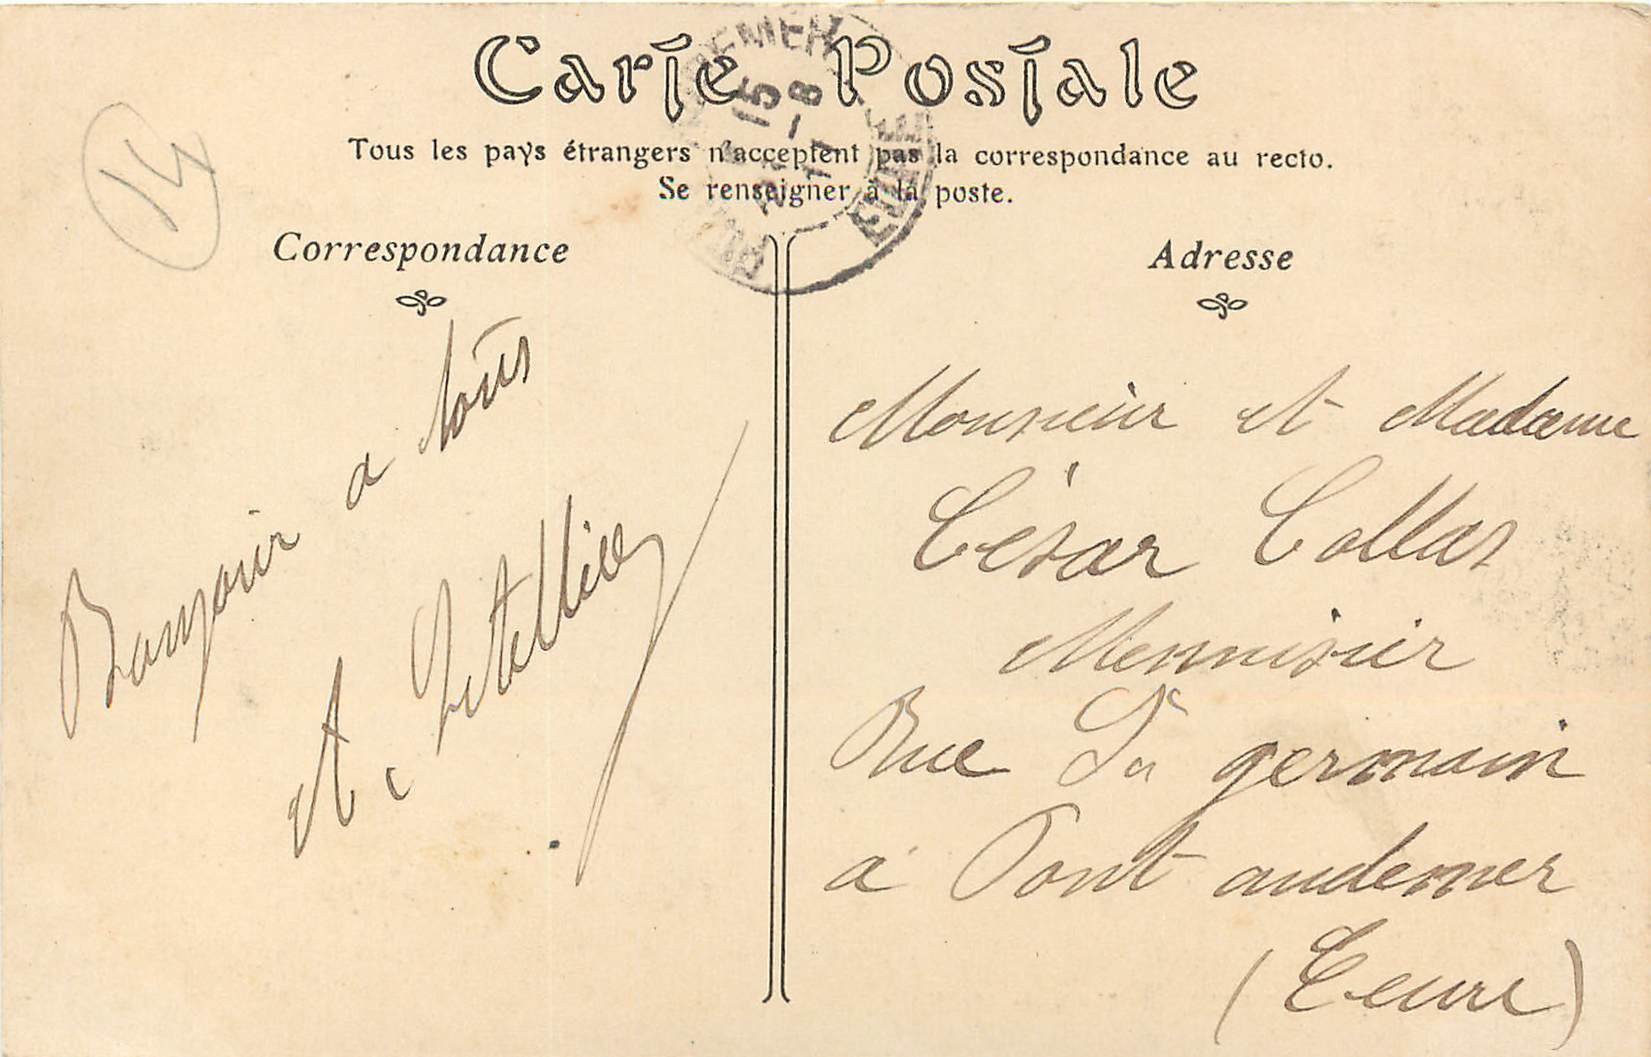 Carte Postale
Tous les pays étrangers n'acceptent pas la correspondance au recto.
Se renseigner à la poste.
14
15 - 8
11
EURE
Correspondance
Adresse
Bonjour a tous
A. Letellier
Monsieur et Madame
César Collas
Mennisier
Rue St germain
a Pont audemer
(Eure)